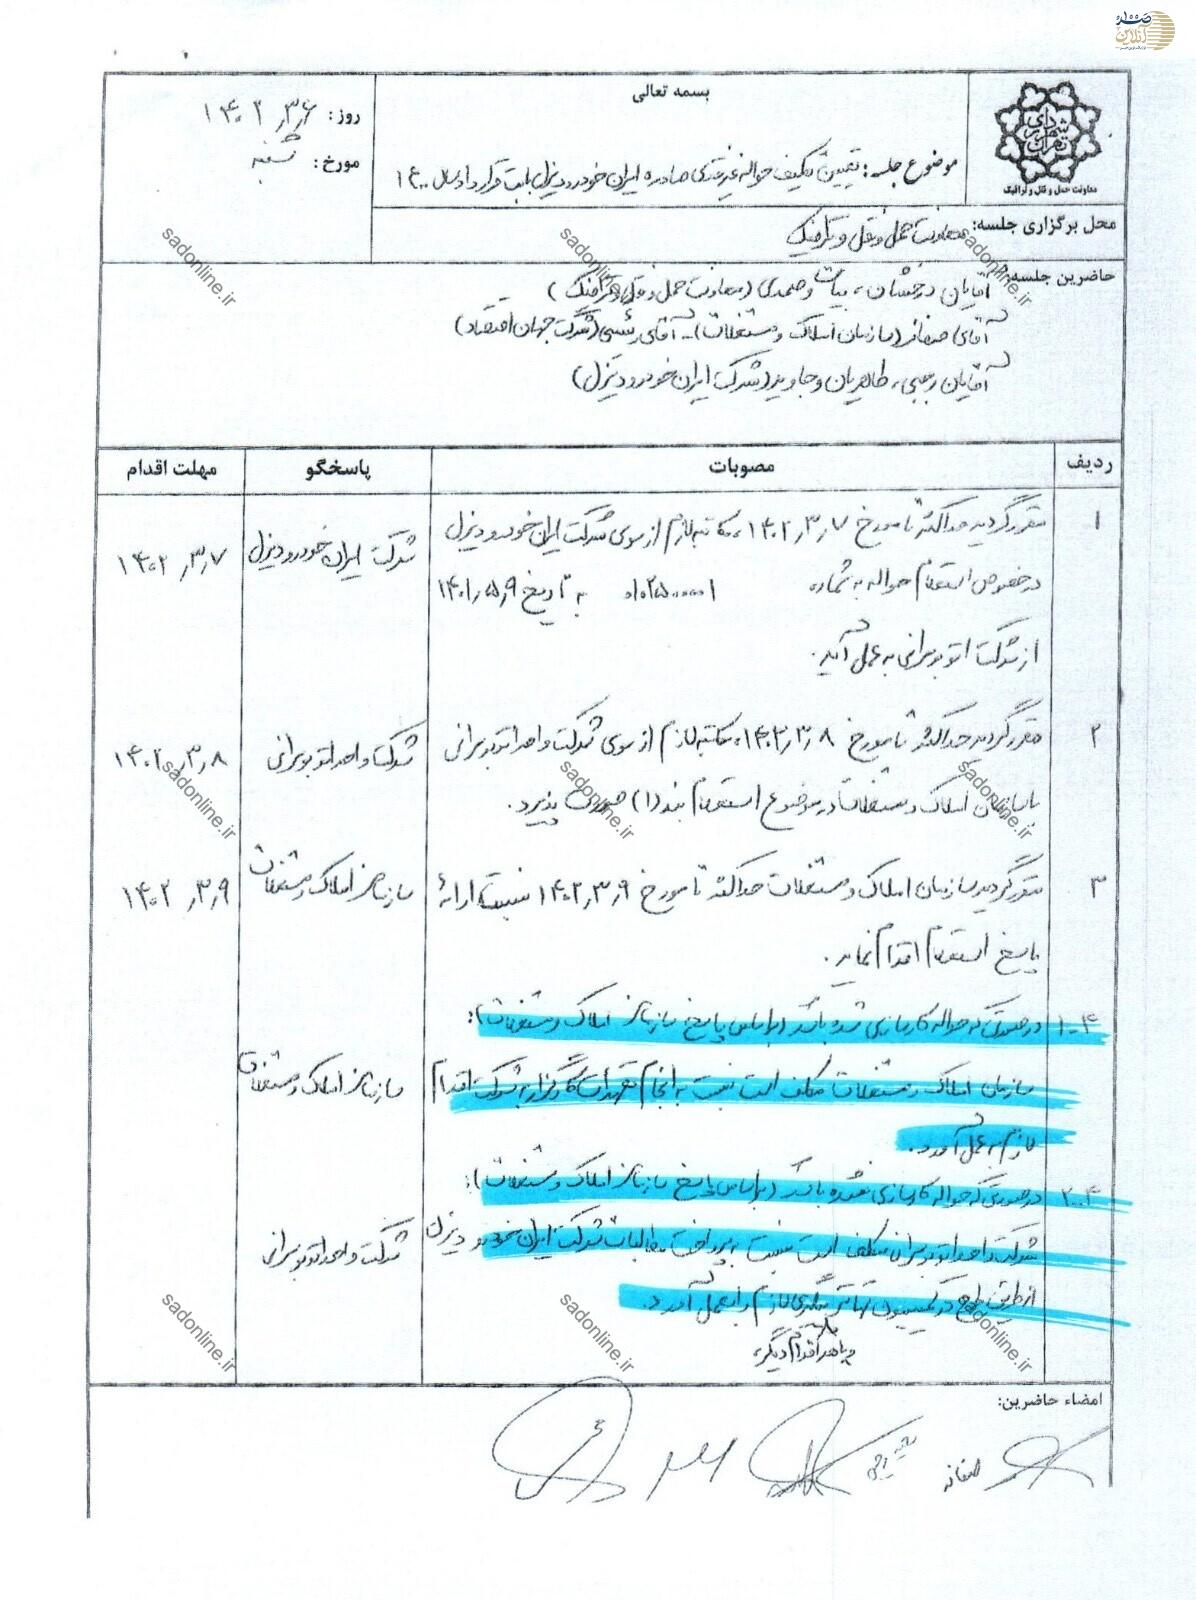 صد آنلاین
بسمه تعالی
شهرداری تهران
معاونت حمل و نقل و ترافیک
موضوع جلسه: تعیین تکلیف حواله غیرنقدی صادره ایران خودرو دیزل بابت قرارداد سال ۱۴۰۰
روز: ۱۴۰۲٫۳٫۶
مورخ: شنبه
محل برگزاری جلسه: معاونت حمل و نقل و ترافیک
حاضرین جلسه: آقایان درخشان، بیات و صمدی (معاونت حمل و نقل و ترافیک)
آقای صفائی (سازمان املاک و مستغلات) - آقای رئیسی (شرکت جهان اقتصاد)
آقایان رجبی، طاهریان و جاوید (شرکت ایران خودرو دیزل)
ردیف مصوبات پاسخگو مهلت اقدام
۱ مقرر گردید حداکثر تا مورخ ۱۴۰۲٫۳٫۷، مکاتبه لازم از سوی شرکت ایران خودرو دیزل شرکت ایران خودرو دیزل ۱۴۰۲٫۳٫۷
در خصوص استعلام حواله به شماره به تاریخ ۱۴۰۱٫۵٫۹
از شرکت اتوبوسرانی به عمل آید.
۲ مقرر گردید حداکثر تا مورخ ۱۴۰۲٫۳٫۸، مکاتبه لازم از سوی شرکت واحد اتوبوسرانی شرکت واحد اتوبوسرانی ۱۴۰۲٫۳٫۸
با سازمان املاک و مستغلات در موضوع استعلام بند (۱) صورت پذیرد.
۳ مقرر گردید سازمان املاک و مستغلات حداکثر تا مورخ ۱۴۰۲٫۳٫۹ نسبت به ارائهٔ سازمان املاک و مستغلات ۱۴۰۲٫۳٫۹
پاسخ استعلام اقدام نماید.
۴-۱ در صورتی که حواله کارسازی شده باشد (براساس پاسخ سازمان املاک و مستغلات):
سازمان املاک و مستغلات مکلف است نسبت به انجام تعهدات کارگزار به شرکت اقدام سازمان املاک و مستغلات
لازم به عمل آورد.
۴-۲ در صورتی که حواله کارسازی نشده باشد (براساس پاسخ سازمان املاک و مستغلات):
شرکت واحد اتوبوسرانی مکلف است نسبت به پرداخت مطالبات شرکت ایران خودرو دیزل شرکت واحد اتوبوسرانی
از طریق طرح در کمیسیون تهاتر پیگیری لازم را به عمل آورد.
و یا هر اقدام دیگر
امضاء حاضرین:
صفائی
sadonline.ir
sadonline.ir
sadonline.ir
sadonline.ir
sadonline.ir
sadonline.ir
sadonline.ir
sadonline.ir
sadonline.ir